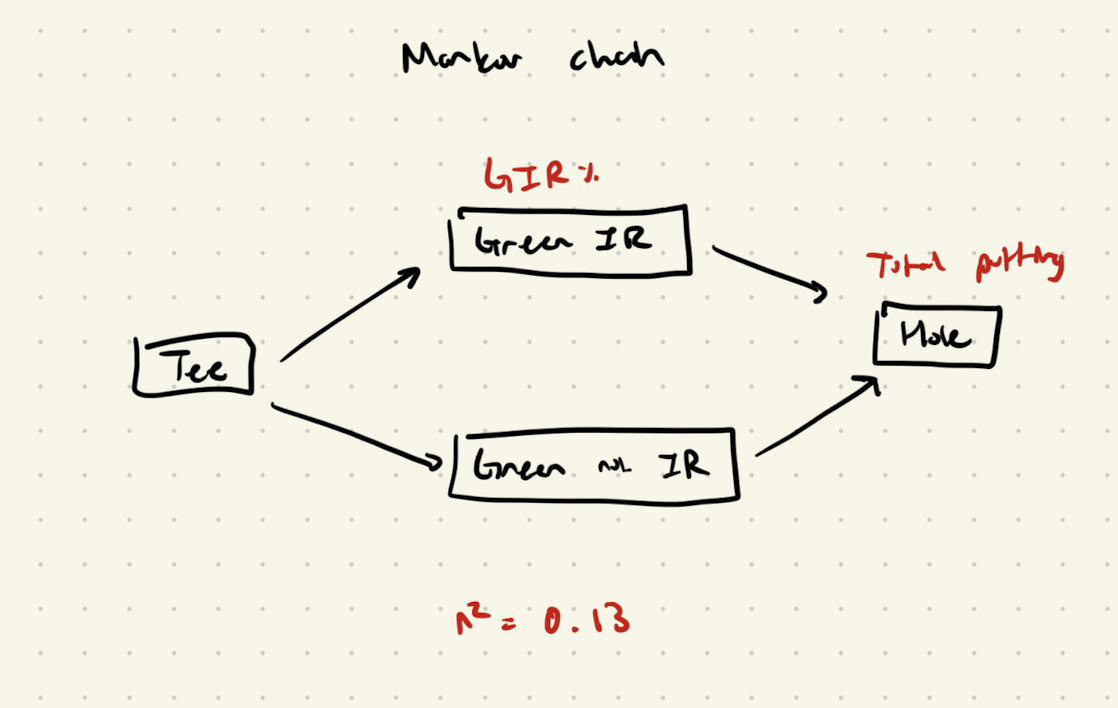 Markov chain
GIR %
Green IR
Total putting
Hole
Tee
Green not IR
r² = 0.13